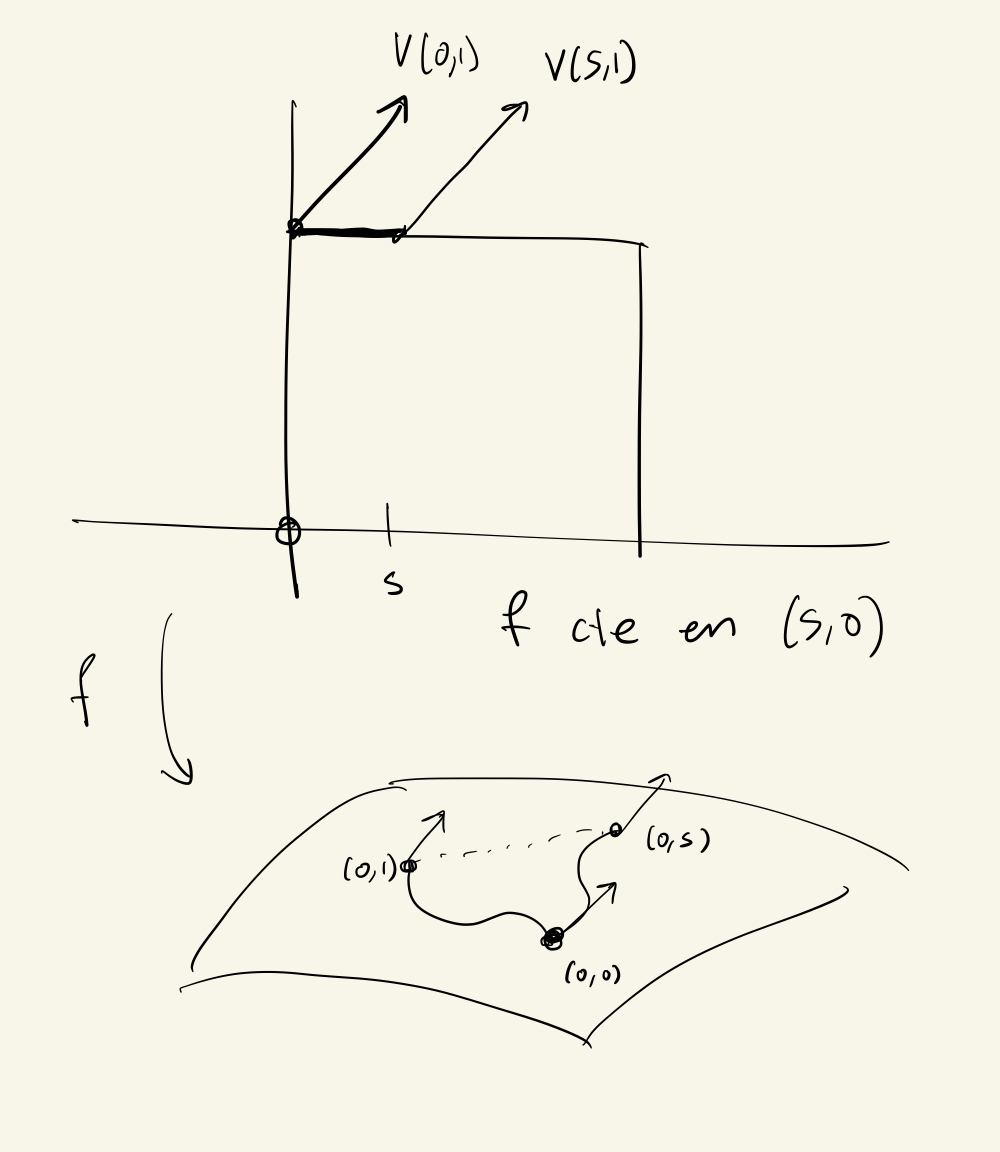 V(0,1) V(s,1)
s
f cte en (s,0)
f
(0,s)
(0,1)
(0,0)